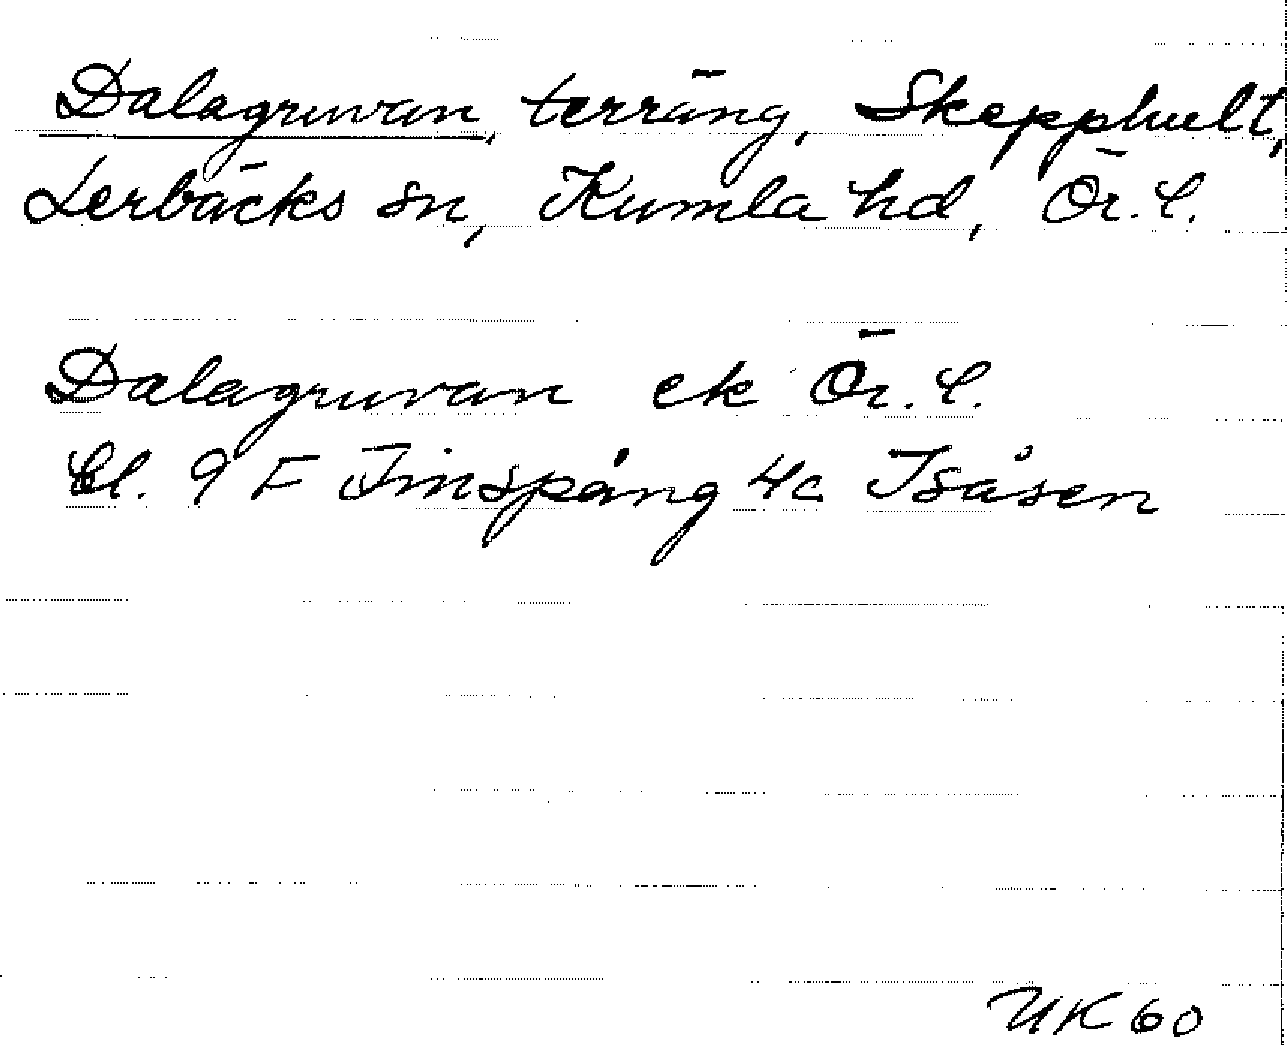 Dalagruvan, terräng, Skepphult,
Lerbäcks sn, Kumla hd, Ör. l.
Dalagruvan ek Ör. l.
Bl. 9 F Finspång 4c Isåsen
UK 60